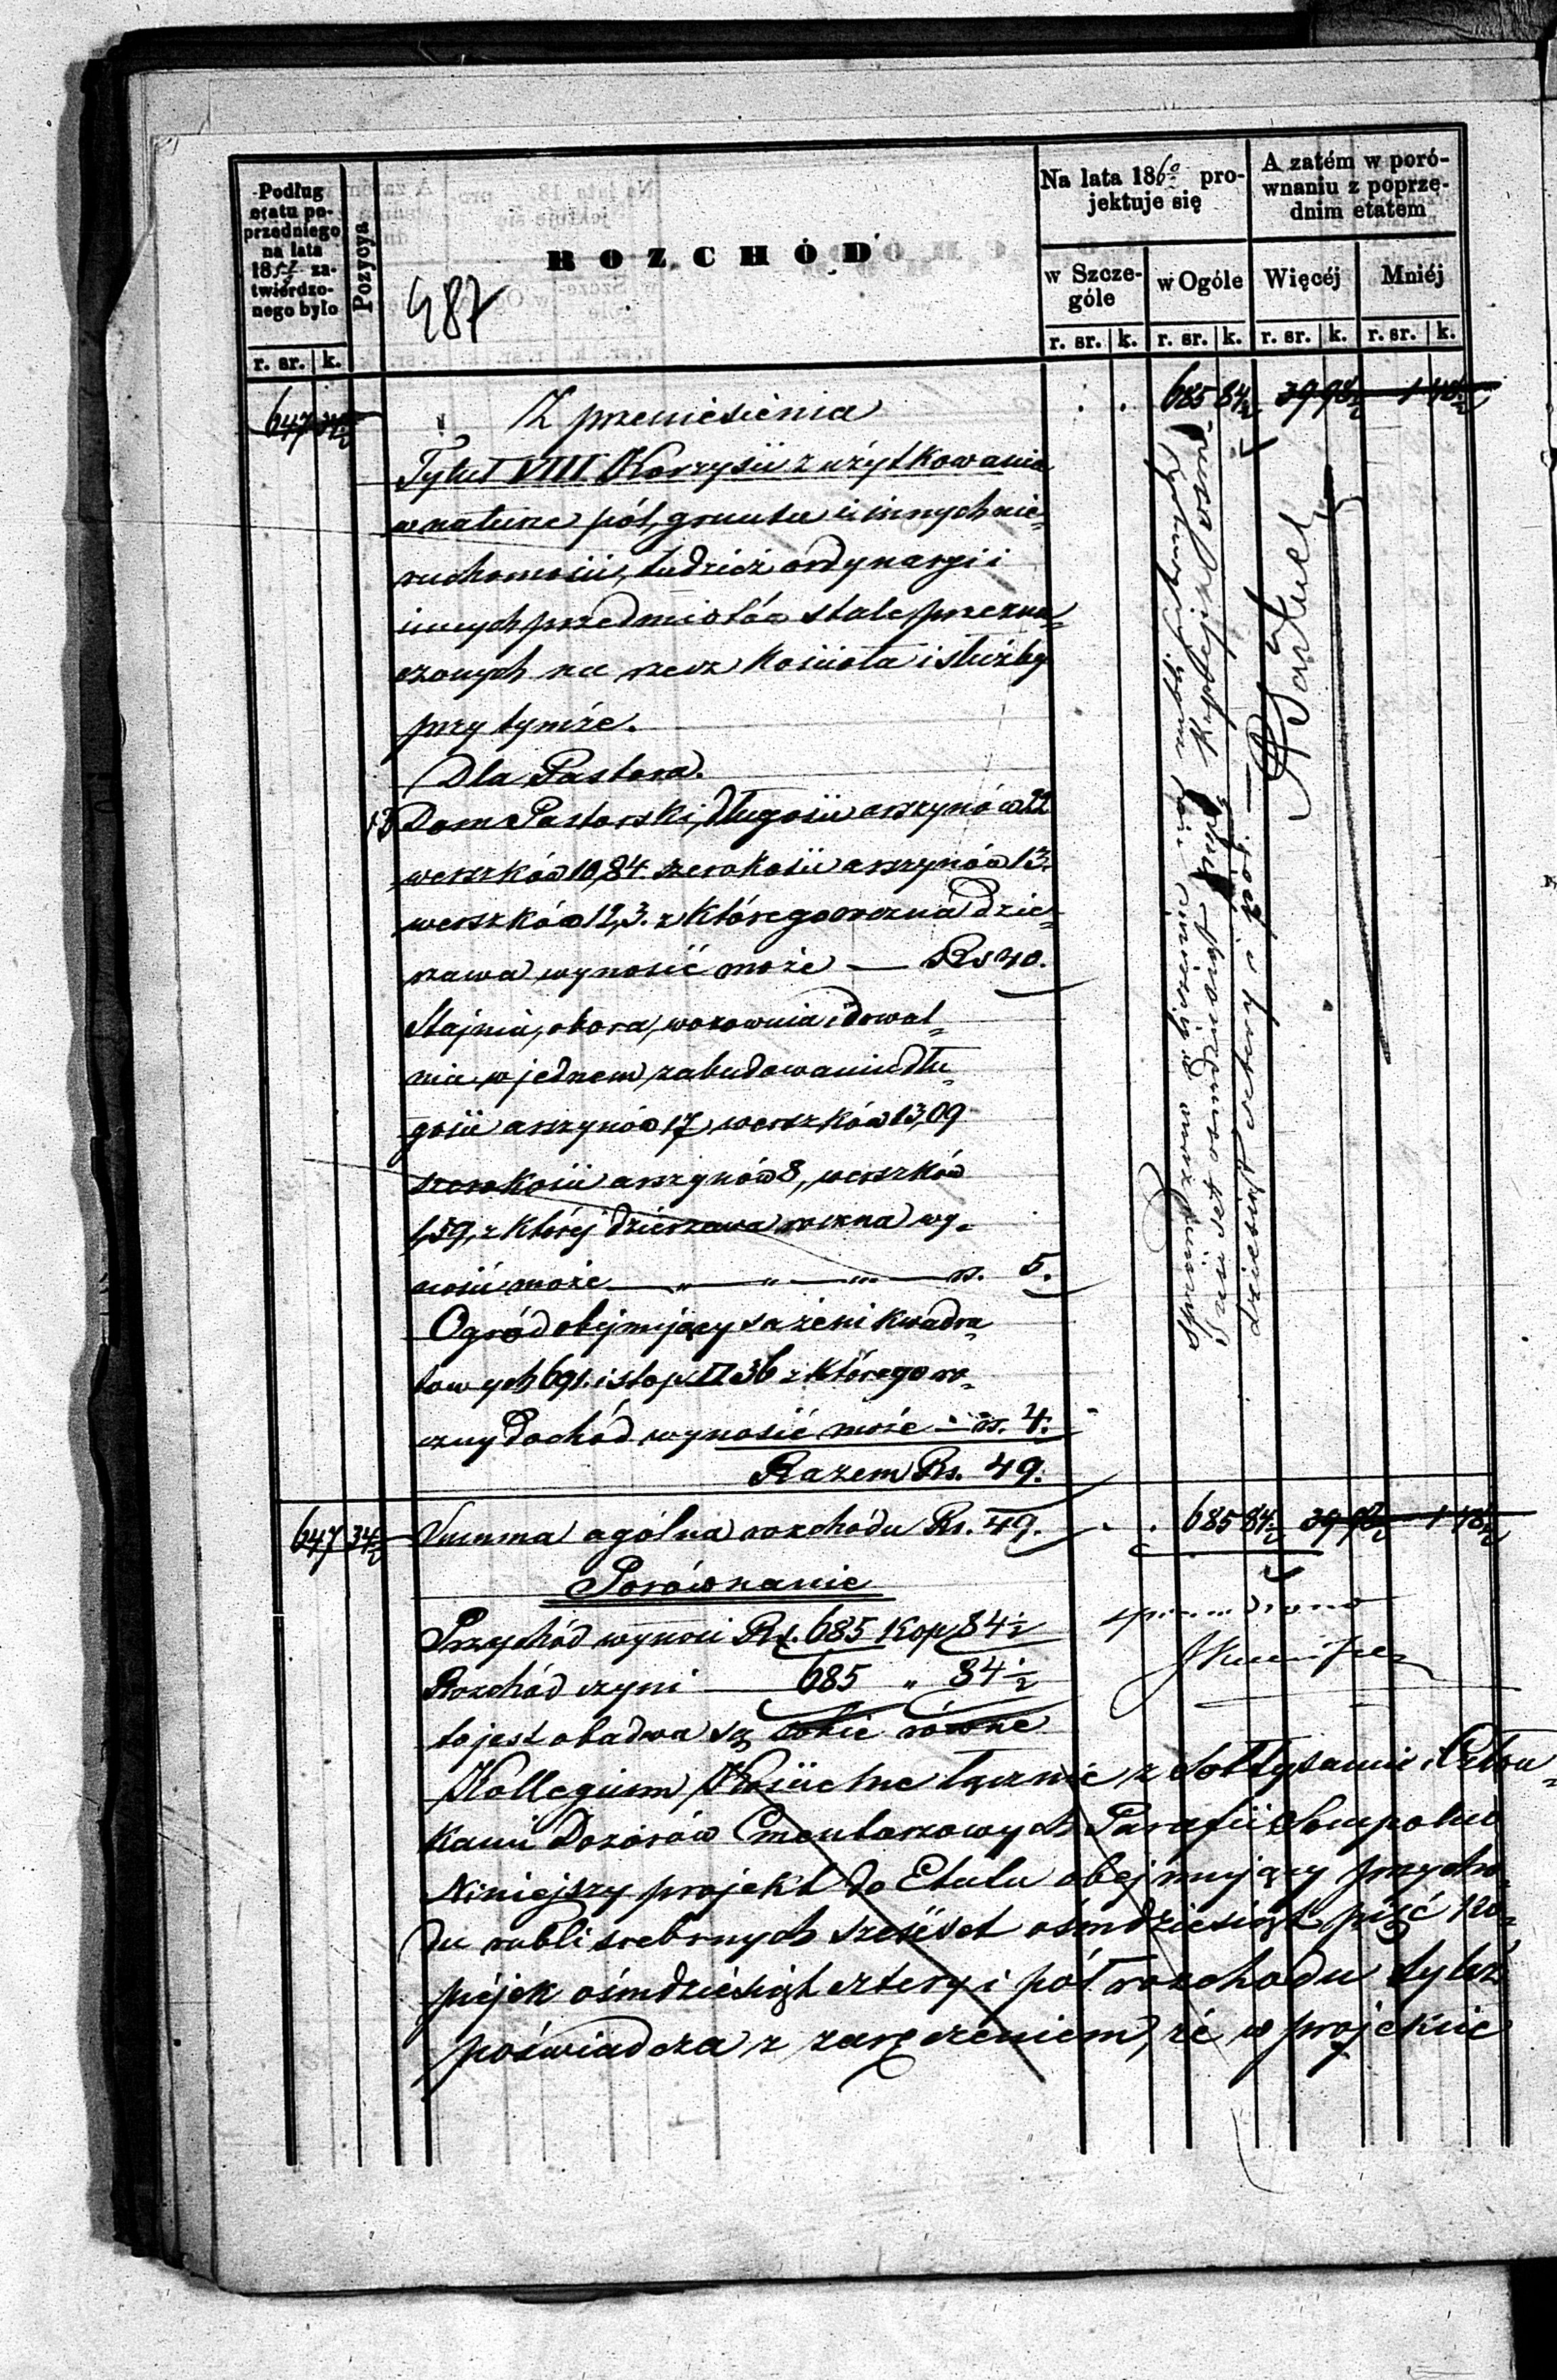 Podług
etatu po-
przedniego
na lata
18 za-
twierdzo-
nego było
Pozycya
ROZCHÓD
487
Na lata 186 pro-
jektuje się
A zatém w poró-
wnaniu z poprze-
dnim etatem
w Szcze-
góle
w Ogóle
Więcéj
Mniéj
r. sr. k. r. sr. k. r. sr. k. r. sr. k. r. sr. k.
647 34½ Z przeniesienia 685 84½ 39 98½ 1 48½
Tytuł VIII. Korzyści z użytkowania
w naturze pól, gruntu i innych nie-
ruchomości, tudzież ordynaryi i
innych przedmiotów stale przezna-
czonych na rzecz Kościoła i służby
przy tymże.
Dla Pastora.
Dom Pastorski, długości arszynów 22
werszków 10,84 szerokości arszynów 13.
werszków 12,3. z którego roczna dzie-
rzawa wynosić może — Rs 40.
Stajnia, obora, wozownia i drwal-
nia w jednem zabudowaniu dłu-
gości arszynów 17, werszków 13,09
szerokości arszynów 8, werszków
1,59, z której dzierzawa roczna wy-
nosić może — " — " — rs. 5.
Ogród obejmujący sążeni kwadra-
towych 691. i stop □ 36 z którego ro-
czny dochód wynosić może — rs. 4.
Razem Rs. 49.
647 34½ Summa ogólna rozchodu Rs. 49. 685 84½ 39 98½ 1 48½
Porównanie
Przychód wynosi Rs. 685 Kop 84½
Rozchód czyni — 685 " 84½
to jest obadwa są sobie równe
Kollegium Kościelne łącznie z Sołtysami i Człon-
kami Dozorów Cmentarzowych Parafii Sompolno
Niniejszy projekt do Etatu obejmujący przycho-
du rubli srebrnych sześćset ośmdziesiąt pięć ko-
piéjek ośmdziesiąt cztery i pół rozchodu tyleż
poświadcza z zaręczeniem, że w projekcie
Sprawdzono w
set osmdziesiąt pięć Kopiejek osm-
dziesiąt cztery i pół. —